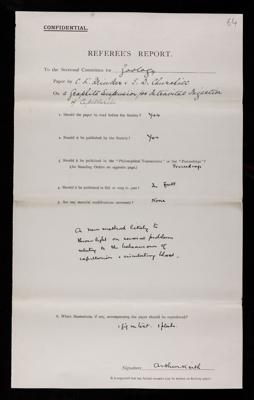 64
CONFIDENTIAL.
REFEREE'S REPORT.
To the Sectional Committee for Zoology
Paper by C. K. Drinker & E. D. Churchill
On a graphite suspension for intravital Injection
of Capillaries
1. Should the paper be read before the Society? Yes
2. Should it be published by the Society? Yes
3. Should it be published in the "Philosophical Transactions" or the "Proceedings"?
(See Standing Orders on opposite page.) Proceedings
4. Should it be published in full or only in part? In full
5. Are any material modifications necessary? None
A new method likely to
throw light on several problems
relating to the behaviour of
capillaries & circulating blood.
6. Which illustrations, if any, accompanying the paper should be reproduced?
1 fig in text. 1 plate.
Signature Arthur Keith
It is requested that